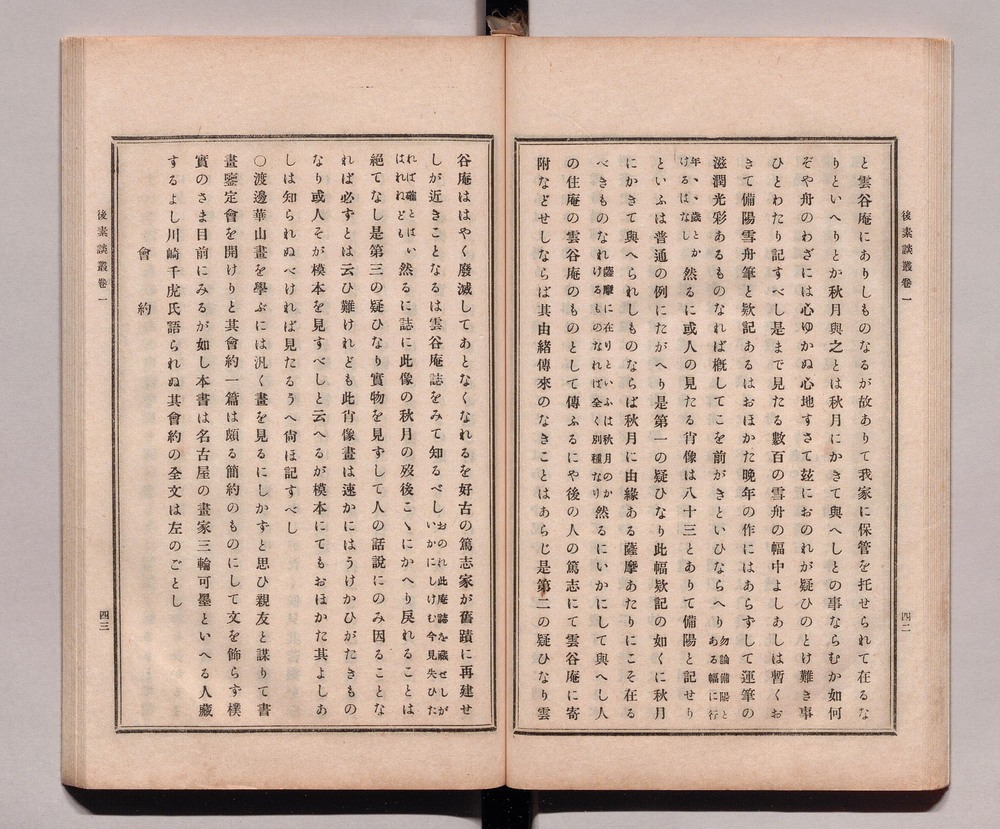 後素談叢卷一
四二
と雲谷庵にありしものなるが故ありて我家に保管を托せられて在るな
りといへりとか秋月與之とは秋月にかきて與へしとの事ならむか如何
ぞや舟のわざには心ゆかぬ心地すさて玆におのれが疑ひのとけ難き事
ひとわたり記すべし是まで見たる數百の雪舟の幅中よしあしは暫くお
きて備陽雪舟筆と欵記あるはおほかた晩年の作にはあらずして運筆の
滋潤光彩あるものなれば槪してこを前がきといひならへり勿論備陽と
ある幅に行
年、、歲とか
けるはなし然るに或人の見たる肖像は八十三とありて備陽と記せり
といふは普通の例にたがへり是第一の疑ひなり此幅欵記の如くに秋月
にかきて與へられしものならば秋月に由緣ある薩摩あたりにこそ在る
べきものなれ薩摩に在りといふは秋月のか
けるものなれば全く別種なり然るにいかにして與へし人
の住庵の雲谷庵のものとして傳ふるにや後の人の篤志にて雲谷庵に寄
附などせしならば其由緖傳來のなきことはあらじ是第二の疑ひなり雲
谷庵ははやく廢滅してあとなくなれるを好古の篤志家が舊蹟に再建せ
しが近きことなるは雲谷庵誌をみて知るべしおのれ此庵誌を藏せしが
いかにしけむ今見失ひた
れば確とはい
はれねども然るに誌に此像の秋月の歿後こゝにかへり戾れることは
絕てなし是第三の疑ひなり實物を見ずして人の話說にのみ因ることな
れば必ずとは云ひ難けれども此肖像畫は速かにはうけかひがたきもの
なり或人そが模本を見すべしと云へるが模本にてもおほかた其よしあ
しは知られぬべければ見たるうへ尙ほ記すべし
〇渡邊華山畫を學ぶには汎く畫を見るにしかずと思ひ親友と謀りて書
畫鑒定會を開けりと其會約一篇は頗る簡約のものにして文を飾らず樸
實のさま目前にみるが如し本書は名古屋の畫家三輪可墨といへる人藏
するよし川崎千虎氏語られぬ其會約の全文は左のごとし
會約
後素談叢卷一
四三